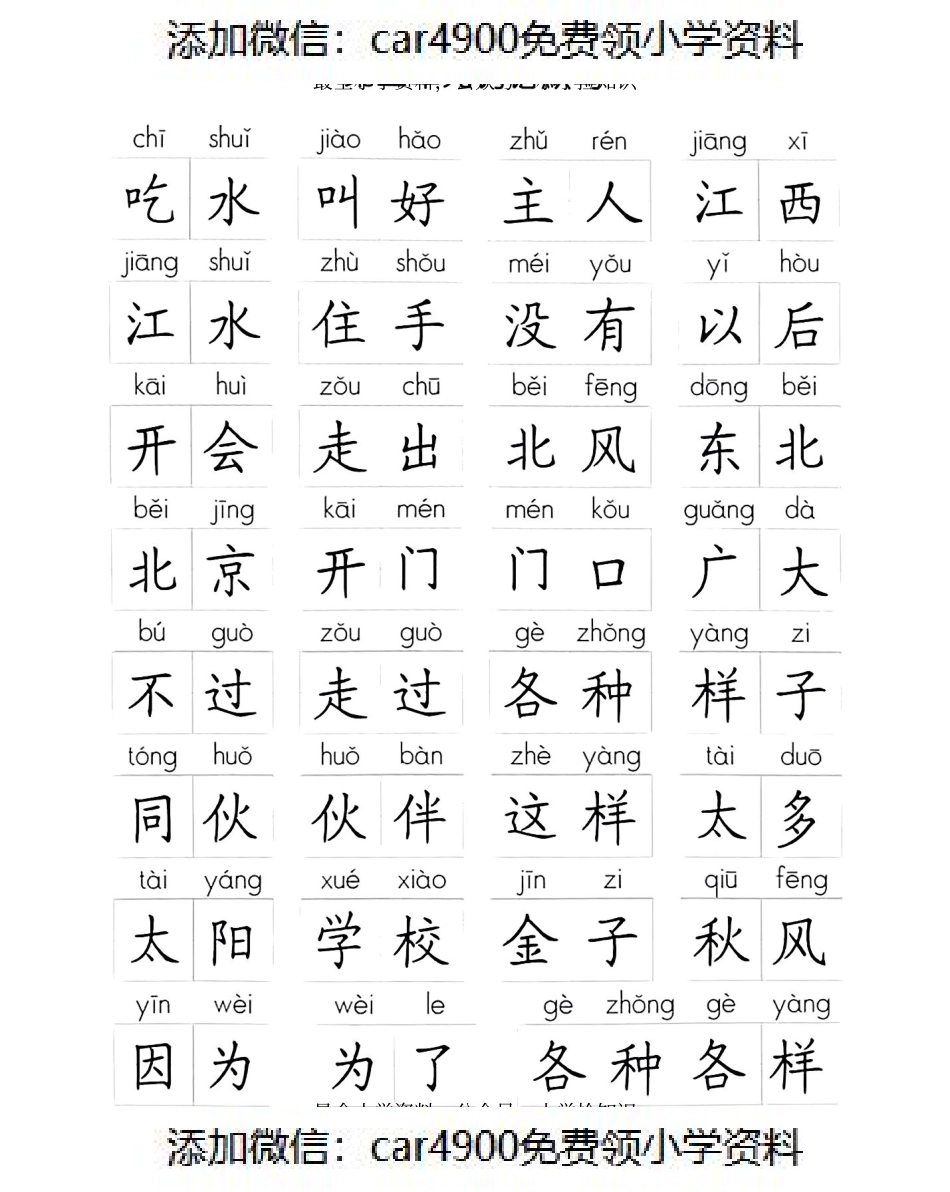 添加微信：car4900免费领小学资料
chī shuǐ jiào hǎo zhǔ rén jiāng xī
吃水 叫好 主人 江西
jiāng shuǐ zhù shǒu méi yǒu yǐ hòu
江水 住手 没有 以后
kāi huì zǒu chū běi fēng dōng běi
开会 走出 北风 东北
běi jīng kāi mén mén kǒu guǎng dà
北京 开门 门口 广大
bú guò zǒu guò gè zhǒng yàng zi
不过 走过 各种 样子
tóng huǒ huǒ bàn zhè yàng tài duō
同伙 伙伴 这样 太多
tài yáng xué xiào jīn zi qiū fēng
太阳 学校 金子 秋风
yīn wèi wèi le gè zhǒng gè yàng
因为 为了 各种各样
添加微信：car4900免费领小学资料